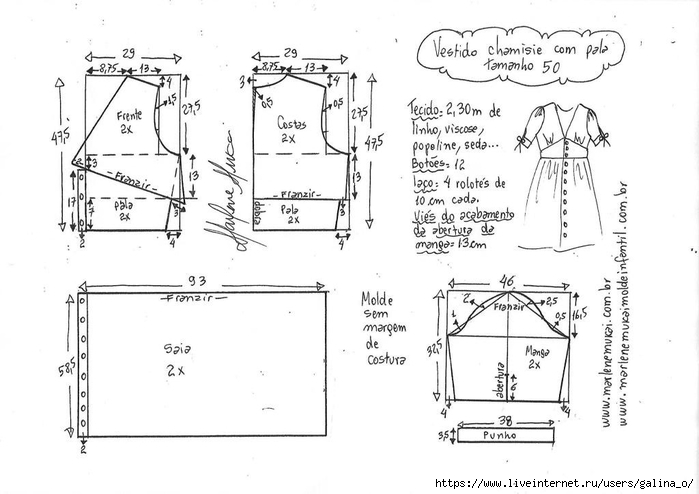 Vestido chamisie com pala
tamanho 50
29
8,75
13
4
1,5
Frente
2x
27,5
47,5
3
2
Franzir
13
17
7
Pala
2x
3
4
2
29
8,75
13
4
3
0,5
0,5
Costas
2x
27,5
47,5
13
Franzir
dobra
Pala
2x
3
4
Tecido= 2,30m de
linho, viscose,
popoline, seda...
Botões= 12
laço= 4 rolotés de
10 cm cada.
Viés do acabamento
da abertura da
manga= 13cm
93
Franzir
58,5
Saia
2x
2
Molde
sem
margem
de
costura
46
2
Franzir
2,5
1
0,5
16,5
32,5
Manga
2x
abertura
6
4
4
38
3,5
Punho
www.marlenemukai.com.br
www.marlenemukaimoldeinfantil.com.br
https://www.liveinternet.ru/users/galina_o/